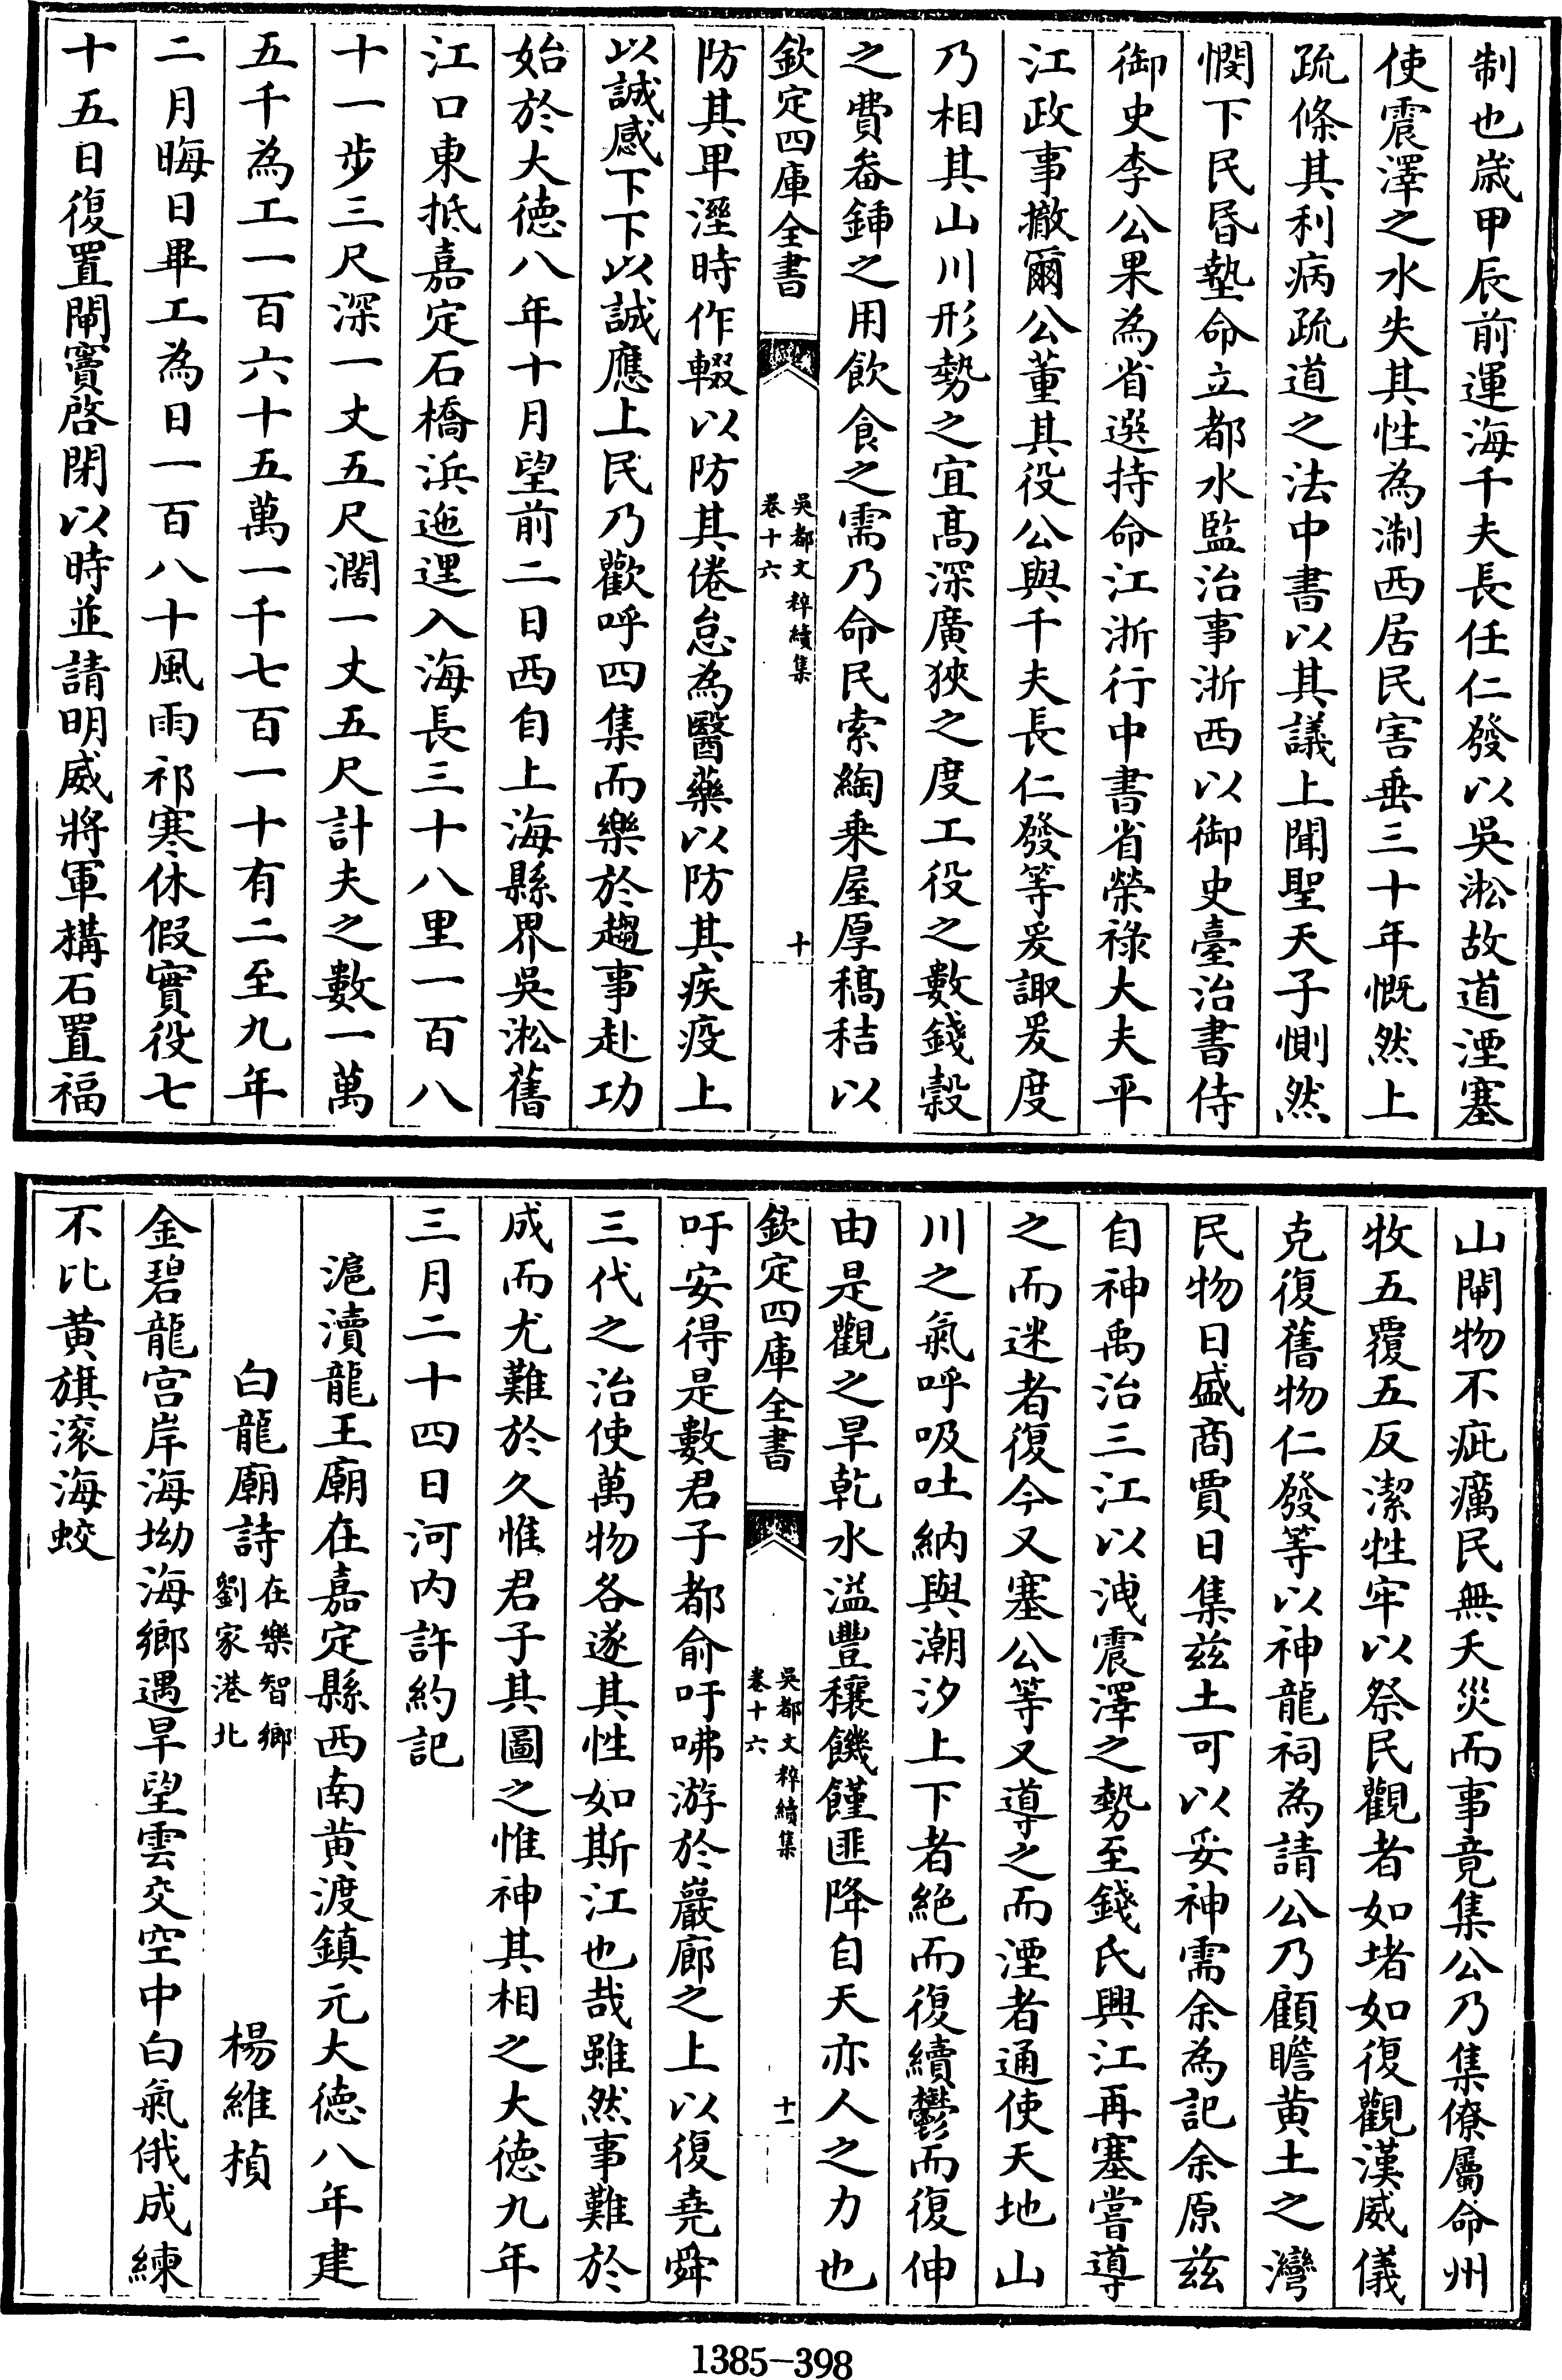 制也嵗甲辰前運海千夫長任仁發以吳淞故道湮塞
使震澤之水失其性為淛西居民害垂三十年慨然上
疏條其利病疏道之法中書以其議上聞聖天子惻然
憫下民昏墊命立都水監治事浙西以御史臺治書侍
御史李公果為省選持命江浙行中書省榮祿大夫平
江政事撤爾公董其役公與千夫長仁發等爰諏爰度
乃相其山川形勢之宜髙深廣狹之度工役之數錢穀
之費畚鍤之用飲食之需乃命民索綯乗屋厚稿秸以
欽定四庫全書
吳都文粹續集
卷十六
十
防其甲溼時作輟以防其倦怠為醫藥以防其疾疫上
以誠感下下以誠應上民乃歡呼四集而樂於趨事赴功
始於大徳八年十月望前二日西自上海縣界吳淞舊
江口東抵嘉定石橋浜迤邐入海長三十八里一百八
十一步三尺深一丈五尺濶一丈五尺計夫之數一萬
五千為工一百六十五萬一千七百一十有二至九年
二月晦日畢工為日一百八十風雨祁寒休假實役七
十五日復置閘竇啓閉以時並請明威將軍構石置福
山閘物不疵癘民無夭災而事竟集公乃集僚屬命州
牧五覆五反潔牲牢以祭民觀者如堵如復觀漢威儀
克復舊物仁發等以神龍祠為請公乃顧瞻黄土之灣
民物日盛商賈日集兹土可以妥神需余為記余原兹
自神禹治三江以洩震澤之勢至錢氏興江再塞嘗導
之而迷者復今又塞公等又導之而湮者通使天地山
川之氣呼吸吐納與潮汐上下者絶而復續鬱而復伸
由是觀之旱乾水溢豐穰饑饉匪降自天亦人之力也
欽定四庫全書
吳都文粹續集
卷十六
十一
吁安得是數君子都俞吁咈游於巖廊之上以復堯舜
三代之治使萬物各遂其性如斯江也哉雖然事難於
成而尤難於久惟君子其圖之惟神其相之大徳九年
三月二十四日河内許約記
滬瀆龍王廟在嘉定縣西南黄渡鎮元大徳八年建
白龍廟詩 在樂智鄉
劉家港北 楊維楨
金碧龍宫岸海坳海鄉遇旱望雲交空中白氣俄成練
不比黄旗滚海蛟
1385-398